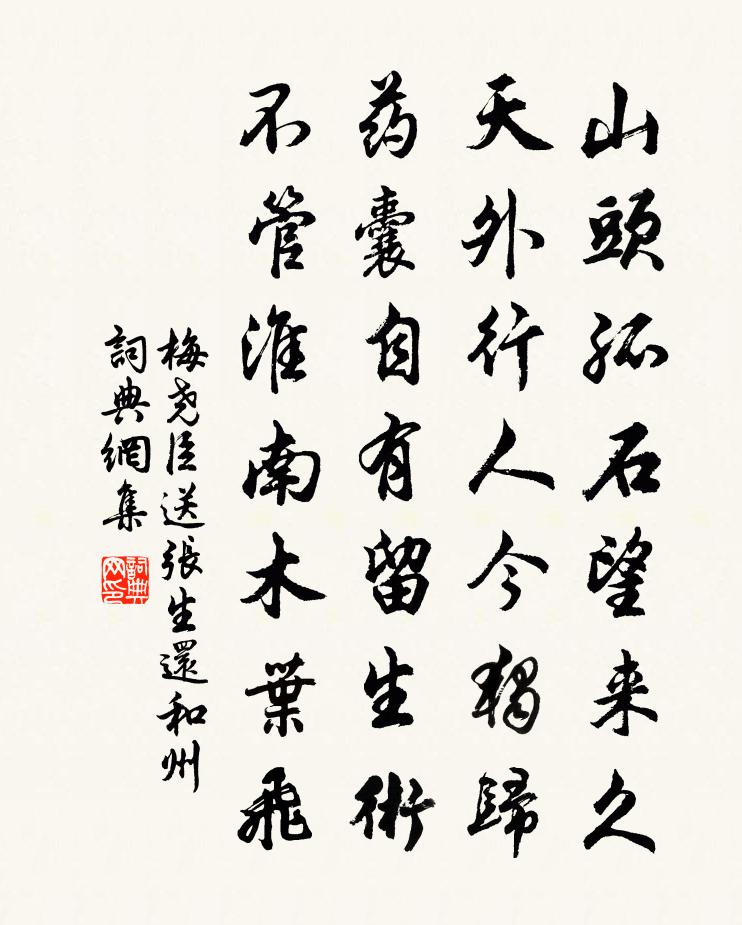 山頭孤石望来久
天外行人今獨歸
药囊自有留生術
不管淮南木葉飛
梅尧臣送張生還和州
詞典網集
詞典网印